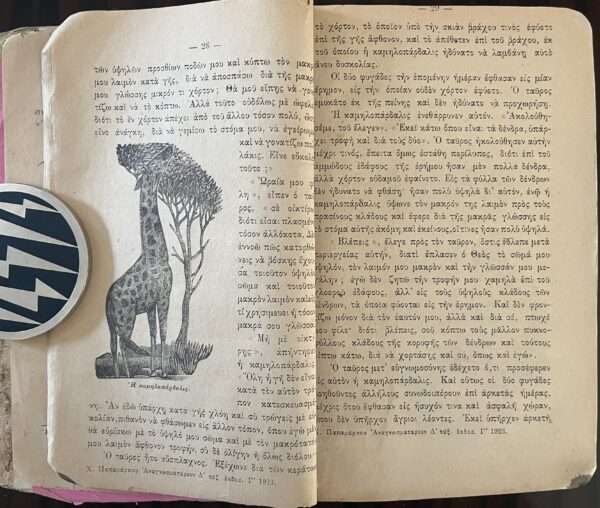 — 28 —
τῶν ὑψηλῶν προσθίων ποδῶν μου καὶ κύπτω τὸν μακρ
μου λαιμὸν κατὰ γῆς, διὰ νὰ ἀποσπάσω διὰ τῆς μακρ
μου γλώσσης μικρόν τι χόρτον; Θὰ μοῦ εἴπῃς νὰ γο
τίζω καὶ νὰ τὸ κόπτω. Ἀλλὰ τοῦτο οὐδόλως μὲ ὠφελ
διότι τὸ ἓν χόρτον ἀπέχει ἀπὸ τοῦ ἄλλου τόσον πολύ, ὥσ
εἶνε ἀνάγκη, διὰ νὰ γεμίσω τὸ στόμα μου, νὰ ἐγείρω
καὶ νὰ γονατίζω π
λάκις. Εἶνε εὔκολ
τοῦτο;
« Ὡραία μου
λη», εἶπεν ὁ τα
ρος, «σὲ οἰκτείρ
διότι εἶσαι πλασμέν
τόσον ἀλλόκοτα. Δὲ
ἐννοῶ πῶς κατορθ
νεις νὰ βόσκῃς ἔχου
σα τοιοῦτον ὑψηλὸ
σῶμα καὶ τοιοῦτον
μακρὸν λαιμὸν καὶ ε
τί χρησιμεύει ἡ τόσο
μακρά σου γλῶσσα
Μὴ μὲ οἰκτί
ρῃς», ἀπήντησε
ἡ καμηλοπάρδαλις
«Ὅλη ἡ γῆ δὲν εἶνε
κατὰ τὸν αὐτὸν τρό
πον κατεσκευασμέ
Ἡ καμηλοπάρδαλις.
νη. Ἂν ἐδῶ ὑπάρχῃ κατὰ γῆς χλόη καὶ σὺ τρώγεις μὲ εὐ
κολίαν, πιθανὸν νὰ φθάσωμεν εἰς ἄλλον τόπον, ὅπου ἐγὼ μὲ
θὰ εὑρίσκω μὲ τὸ ὑψηλό μου σῶμα καὶ μὲ τὸν μακρότατό
μου λαιμὸν ἄφθονον τροφήν, σὺ δὲ ὀλίγην ἢ ὅλως διόλου
Ὁ ταῦρος ἦτο εὔσπλαχνος. Ἐξέχωνε διὰ τῶν κεράτων
Χ. Παπαμάρκου Ἀναγνωσματάριον Δ΄ τάξ. ἔκδοσ. Γ΄ 1923.
— 29 —
τὸ χόρτον, τὸ ὁποῖον ὑπὸ τὴν σκιὰν βράχου τινὸς ἐφύετο
ἐπὶ τῆς γῆς ἄφθονον, καὶ τὸ ἀπέθετεν ἐπὶ τοῦ βράχου, ἐκ
τοῦ ὁποίου ἡ καμηλοπάρδαλις ἠδύνατο νὰ λαμβάνῃ αὐτὸ
ἄνευ δυσκολίας.
Οἱ δύο φυγάδες τὴν ἑπομένην ἡμέραν ἔφθασαν εἰς μίαν
ἔρημον, εἰς τὴν ὁποίαν οὐδὲν χόρτον ἐφύετο. Ὁ ταῦρος
ἐμυκᾶτο ἐκ τῆς πείνης καὶ δὲν ἠδύνατο νὰ προχωρήσῃ.
Ἡ καμηλοπάρδαλις ἐνεθάρρυνεν αὐτόν. «Ἀκολούθη-
σέμε, τοῦ ἔλεγεν». «Ἐκεῖ κάτω ὅπου εἶνε τὰ δένδρα, ὑπάρ-
χει τροφὴ καὶ διὰ τοὺς δύο». Ὁ ταῦρος ἠκολούθησεν αὐτὴν
μέχρι τινός, ἔπειτα ὅμως ἐστάθη περίλυπος, διότι ἐπὶ τοῦ
ἀμμώδους ἐδάφους τῆς ἐρήμου ἦσαν μὲν πολλὰ δένδρα,
ἀλλὰ χόρτον οὐδαμοῦ ἐφαίνετο. Εἰς τὰ φύλλα τῶν δένδρων
δὲν ἠδύνατο νὰ φθάσῃ· ἦσαν πολὺ ὑψηλὰ δι' αὐτόν, ἐνῷ ἡ
καμηλοπάρδαλις ὕψωνε τὸν μακρόν της λαιμὸν πρὸς τοὺς
πρασίνους κλάδους καὶ ἔφερε διὰ τῆς μακρᾶς γλώσσης εἰς
τὸ στόμα αὐτῆς ἀκόμη καὶ ἐκείνους, οἵτινες ἦσαν πολὺ ὑψηλά.
«Βλέπεις», ἔλεγε πρὸς τὸν ταῦρον, ὅστις ἔβλεπε μετὰ
περιεργείας αὐτήν, διατί ἔπλασεν ὁ Θεὸς τὸ σῶμά μου
ὑψηλόν, τὸν λαιμόν μου μακρὸν καὶ τὴν γλῶσσάν μου με-
γάλην; ἐγὼ δὲν ζητῶ τὴν τροφήν μου χαμηλὰ ἐπὶ τοῦ
χλοεροῦ ἐδάφους, ἀλλ' εἰς τοὺς ὑψηλοὺς κλάδους τῶν
δένδρων, τὰ ὁποῖα φύονται εἰς τὴν ἔρημον. Καὶ δὲν φρον-
τίζω μόνον διὰ τὸν ἑαυτόν μου, ἀλλὰ καὶ διὰ σέ, πτωχέ
μου φίλε· διότι βλέπεις, σοῦ κόπτω τοὺς μᾶλλον πυκνο-
φύλλους κλάδους τῆς κορυφῆς τῶν δένδρων καὶ τούτους
ῥίπτω κάτω, διὰ νὰ χορτάσῃς καὶ σύ, ὅπως καὶ ἐγώ».
Ὁ ταῦρος μετ' εὐγνωμοσύνης ἐδέχετο ὅ,τι προσέφερεν
εἰς αὐτὸν ἡ καμηλοπάρδαλις. Καὶ οὕτως οἱ δύο φυγάδες
βοηθοῦντες ἀλλήλους συνωδοιπόρουν ἐπὶ ἀρκετὰς ἡμέρας,
μέχρις ὅτου ἔφθασαν εἰς ἡσυχόν τινα καὶ ἀσφαλῆ χώραν,
ὅπου δὲν ὑπῆρχον ἄγριοι λέοντες. Ἐκεῖ ὑπῆρχεν ἀρκετή,
Παπαμάρκου Ἀναγνωσματάριον Δ΄ τάξ. ἔκδοσ. Γ΄ 1923.